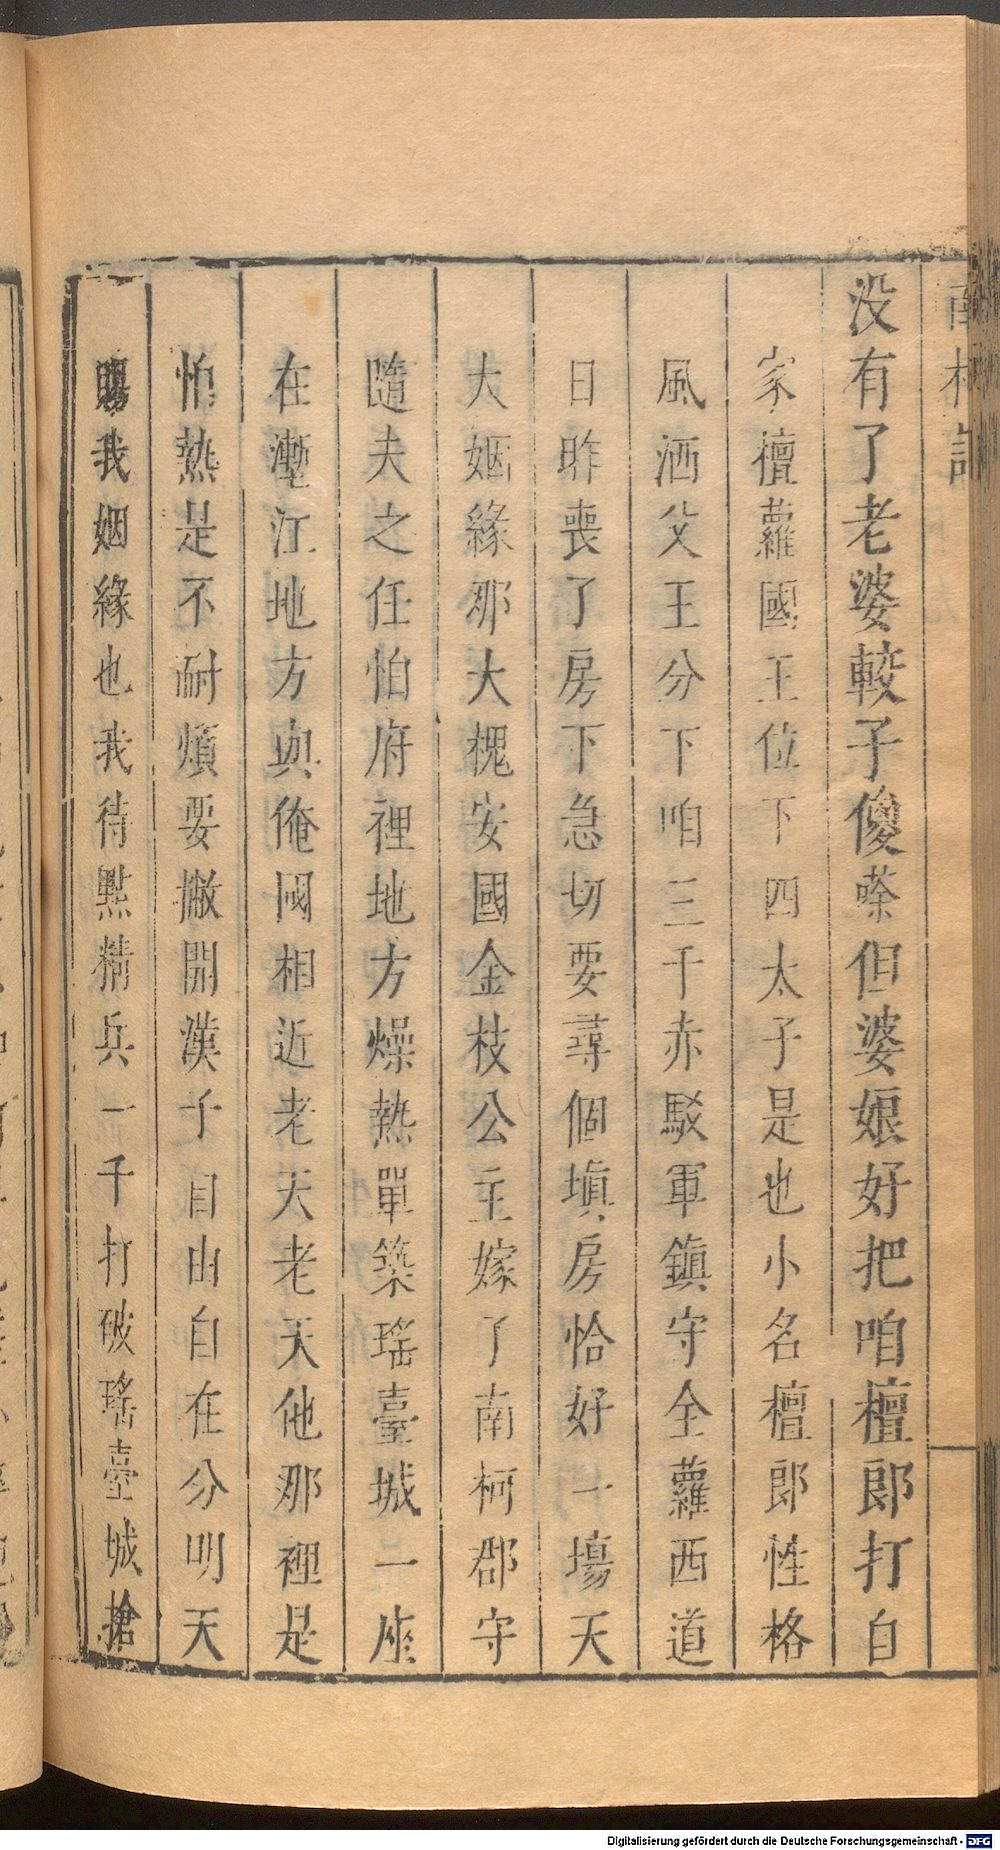 南柯記
没有了老婆較子傻嗏但婆娘好把咱檀郎打自
家檀蘿國王位下四太子是也小名檀郎性格
風洒父王分下咱三千赤駁軍鎮守全蘿西道
日昨喪了房下急切要尋個塡房恰好一塲天
大姻緣那大槐安國金枝公主嫁了南柯郡守
隨夫之任怕府裡地方燥熱單築瑤臺城一座
在壍江地方與俺國相近老天老天他那裡是
怕熱是不耐煩要撇開漢子自由自在分明天
賜我姻緣也我待點精兵一千打破瑤臺城搶
Digitalisierung gefördert durch die Deutsche Forschungsgemeinschaft - DFG